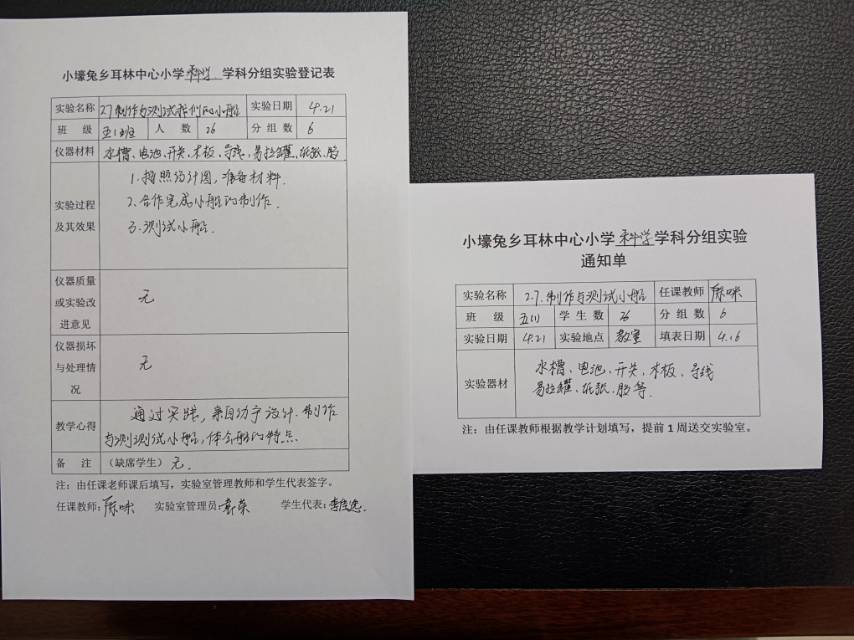 小壕兔乡耳林中心小学 科学 学科分组实验登记表
实验名称 2.7制作与测试我们的小船 实验日期 4.21
班 级 五(1)班 人 数 26 分 组 数 6
仪器材料 水槽、电池、开关、木板、导线、易拉罐、纸张、胶
实验过程及其效果
1.按照设计图,准备材料.
2.合作完成小船的制作.
3.测试小船.
仪器质量或实验改进意见 无
仪器损坏与处理情况 无
教学心得 通过实践,亲自动手设计、制作
与测测试小船,体会船的特点.
备 注 (缺席学生) 无.
注:由任课老师课后填写,实验室管理教师和学生代表签字。
任课教师: 实验室管理员: 学生代表:
小壕兔乡耳林中心小学 科学 学科分组实验
通知单
实验名称 2.7.制作与测试小船 任课教师
班 级 五(1) 学 生 数 26 分 组 数 6
实验日期 4.21 实验地点 教室 填表日期 4.16
实验器材 水槽、电池、开关、木板、导线
易拉罐、纸张、胶等.
注:由任课教师根据教学计划填写,提前1周送交实验室。